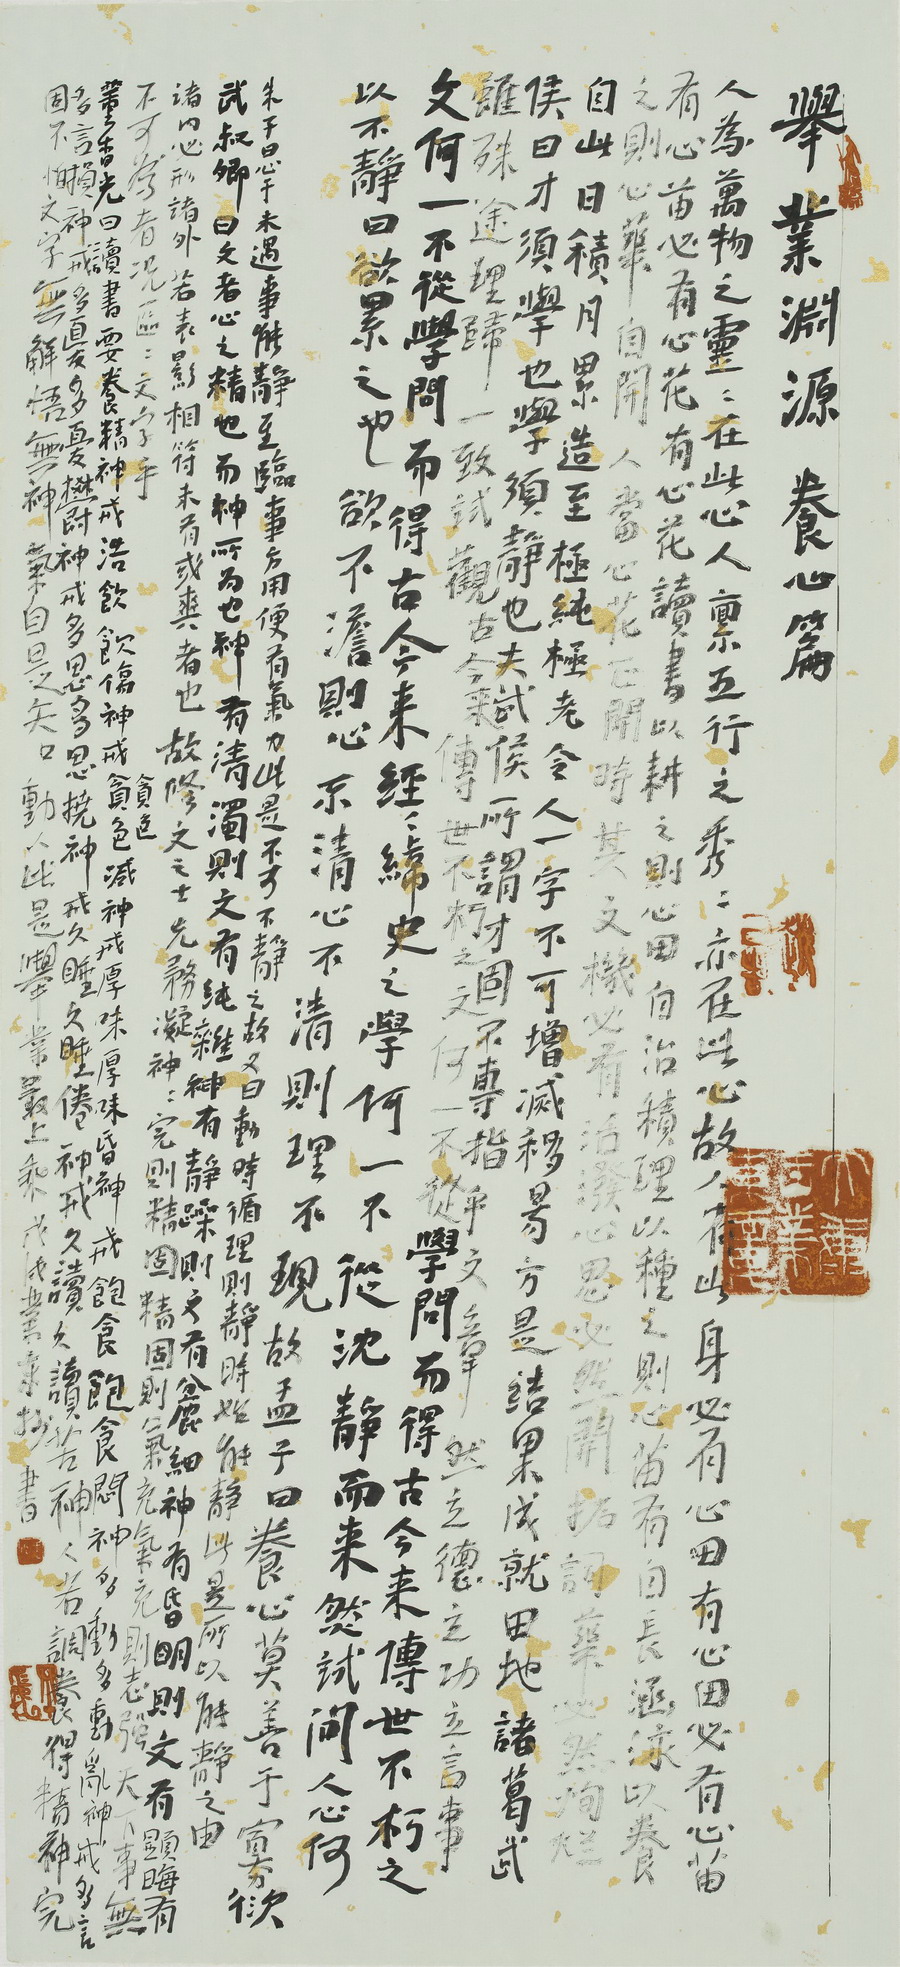 舉業淵源 養心篇
人為萬物之靈靈在此心人稟五行之秀秀亦在此心故人有此身必有心田有心田必有心苗
有心苗必有心花有心花讀書以耕之則心田自治積理以種之則心苗有自長涵泳以養
之則心華自開人當心花正開時其文機必有活潑心思必然開拓詞華必然絢爛
自此日積月累造至極純極老令人一字不可增減移易方是結果成就田地諸葛武
侯曰才須學也學須靜也夫武侯所謂才固不專指乎文章然立德立功立言事
雖殊途理歸一致試觀古今來傳世不朽之文何一不從學問而得古今來傳世不朽之
文何一不從學問而得古今來經經緯史之學何一不從沈靜而來然試問人心何
以不靜曰欲累之也欲不澹則心不清心不清則理不現故孟子曰養心莫善于寡欲
朱子曰心于未遇事能靜至臨事方用便有氣力此是不可不靜之故又曰動時循理則靜時始能靜此是所以能靜之由
武叔卿曰文者心之精也而神所為也神有清濁則文有純雜神有靜躁則文有麤細神有昏明則文有顯晦有
諸內必形諸外若表影相符未有或爽者也故修文之士先務凝神神完則精固精固則氣充氣充則志強天下事無
不可為者況區區文字乎
董香光曰讀書要養精神戒浩飲飲傷神戒貪色貪色減神戒厚味厚味昏神戒飽食飽食悶神多動多動亂神戒多言
多言損神戒多憂多憂鬱神戒多思多思撓神戒久睡久睡倦神戒久讀久讀苦神人若調養得精神完
固不怕文字無解悟無神氣自是矢口動人此是舉業最上乘 戊戌業家抄書